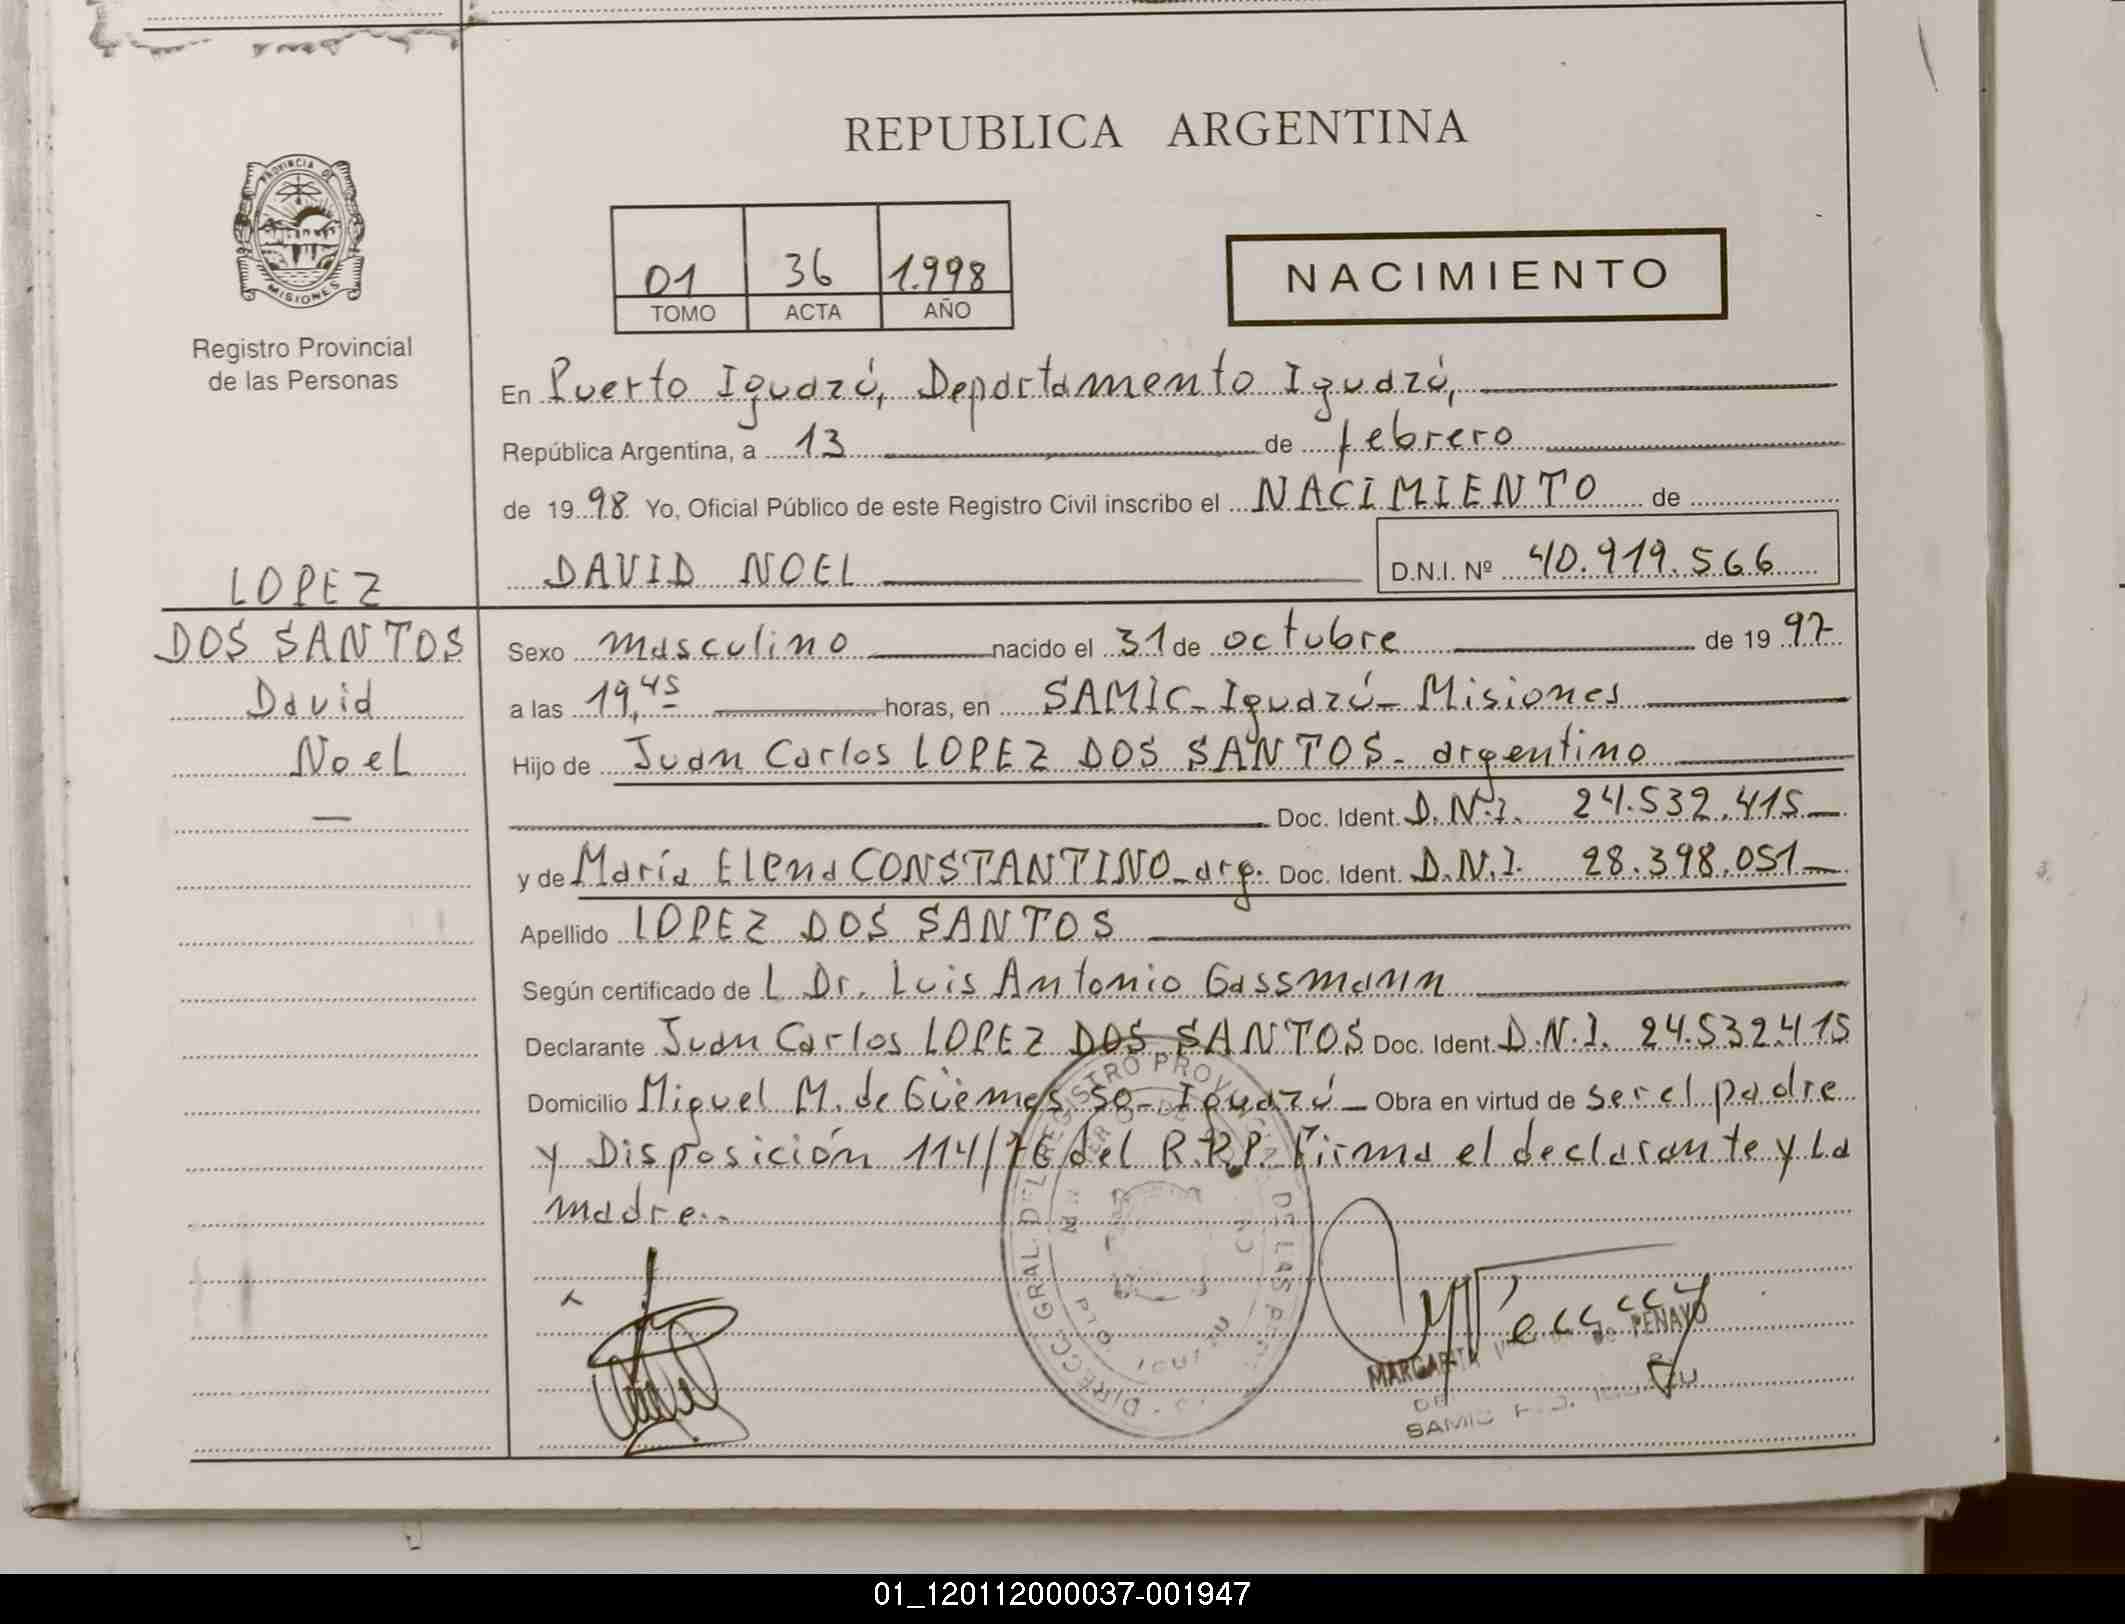 REPUBLICA ARGENTINA
PROVINCIA DE
MISIONES
Registro Provincial
de las Personas
01 36 1.998
TOMO ACTA AÑO
NACIMIENTO
En Puerto Iguazú, Departamento Iguazú,
República Argentina, a 13 de febrero
de 1998 Yo, Oficial Público de este Registro Civil inscribo el NACIMIENTO de
DAVID NOEL D.N.I. Nº 40.919.566
LOPEZ
DOS SANTOS
David
Noel
—
Sexo masculino nacido el 31 de octubre de 1997
a las 19,45 horas, en SAMIC - Iguazú - Misiones
Hijo de Juan Carlos LOPEZ DOS SANTOS - argentino
Doc. Ident. D.N.I. 24.532.415
y de María Elena CONSTANTINO - arg. Doc. Ident. D.N.I. 28.398.051
Apellido LOPEZ DOS SANTOS
Según certificado de L Dr. Luis Antonio Gassmann
Declarante Juan Carlos LOPEZ DOS SANTOS Doc. Ident. D.N.I. 24.532.415
Domicilio Miguel M. de Güemes so - Iguazú - Obra en virtud de ser el padre
y Disposición 114/76 del R.P.P. Firma el declarante y La
madre..
DIRECC. GRAL. DEL REGISTRO PROVINCIAL DE LAS
MARGARITA PENAYO
SAMIC
01_120112000037-001947